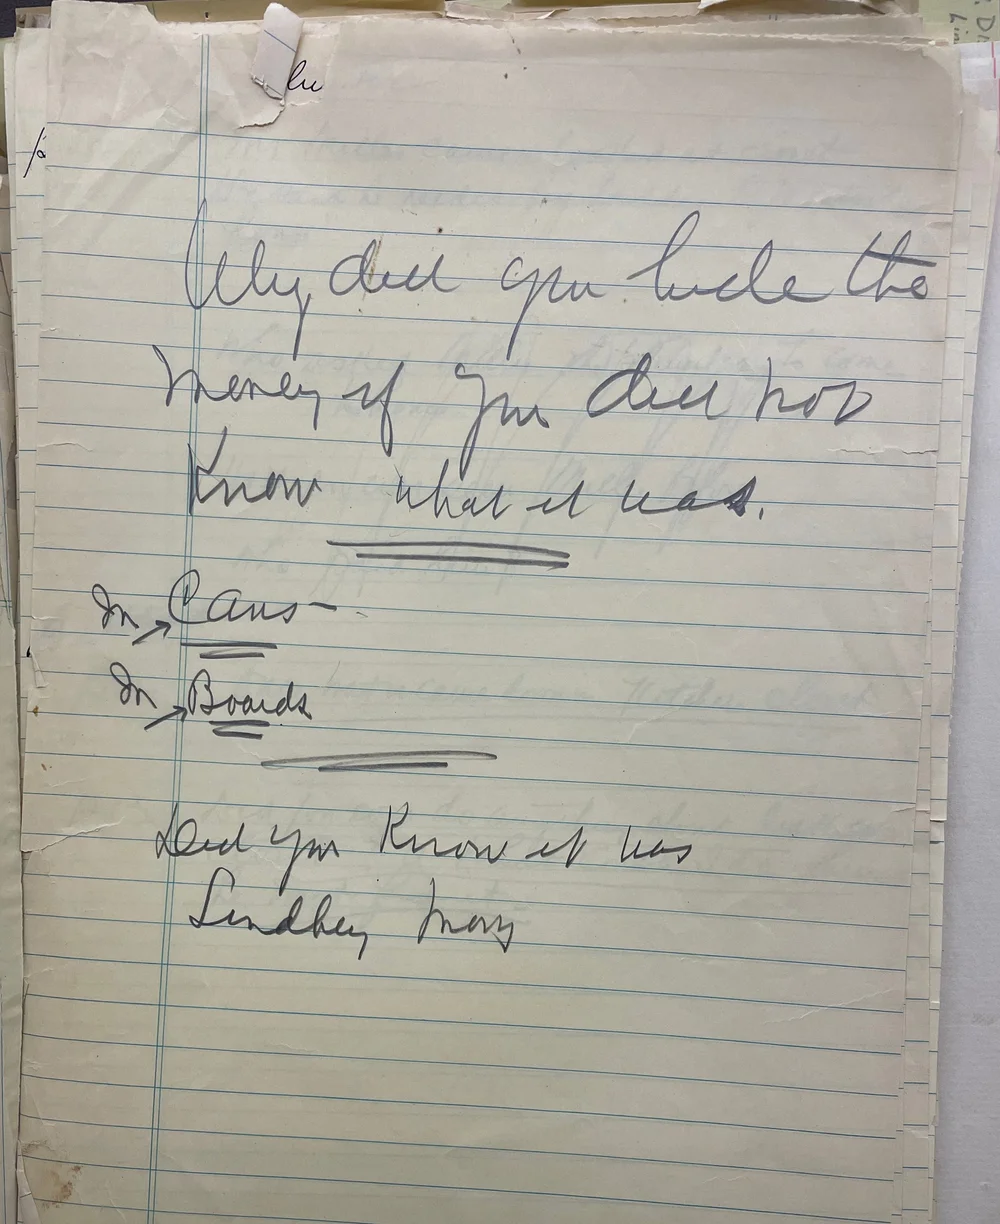 Why did you hide the
money if you did not
Know what it was.
In → Cans -
In → Boards
Did you Know it was
Lindbey Mony